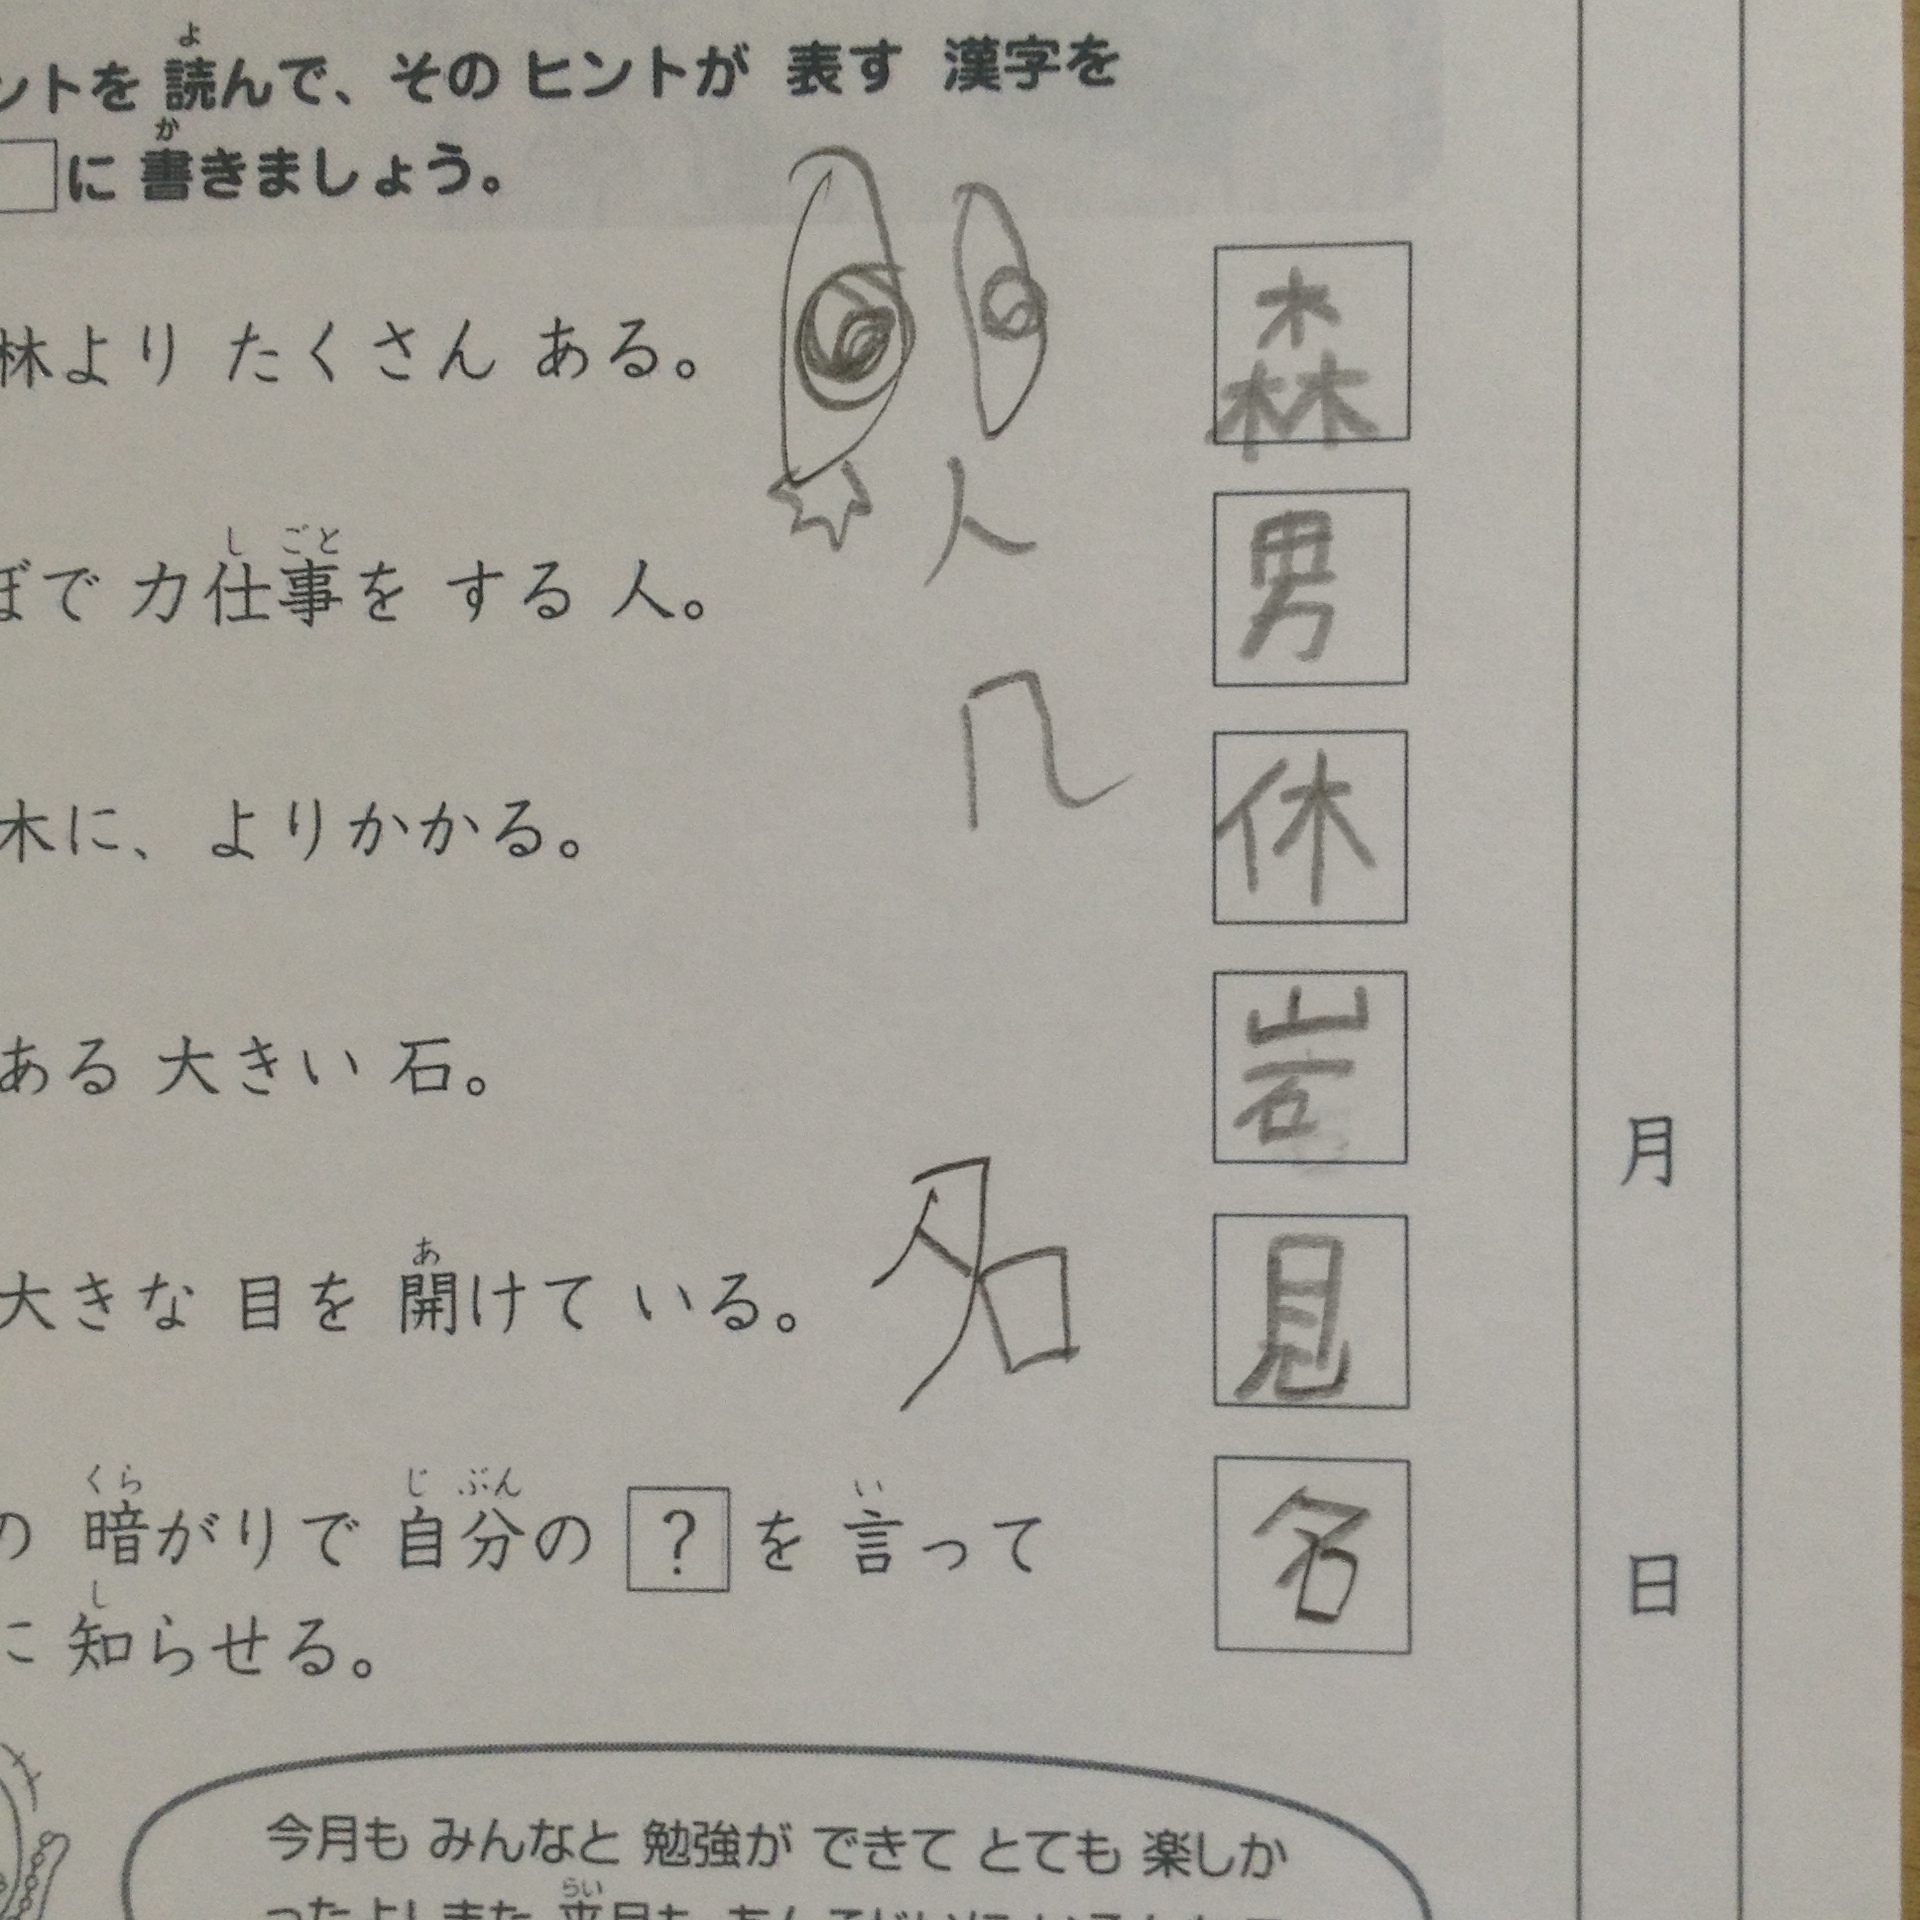 ントを 読んで、その ヒントが 表す 漢字を
に 書きましょう。
林より たくさん ある。
森
人
ぼで 力仕事を する 人。
男
木に、よりかかる。
休
ある 大きい 石。
岩
月
名
大きな 目を 開けて いる。
見
の 暗がりで 自分の ? を 言って
名
日
に 知らせる。
今月も みんなと 勉強が できて とても 楽しか